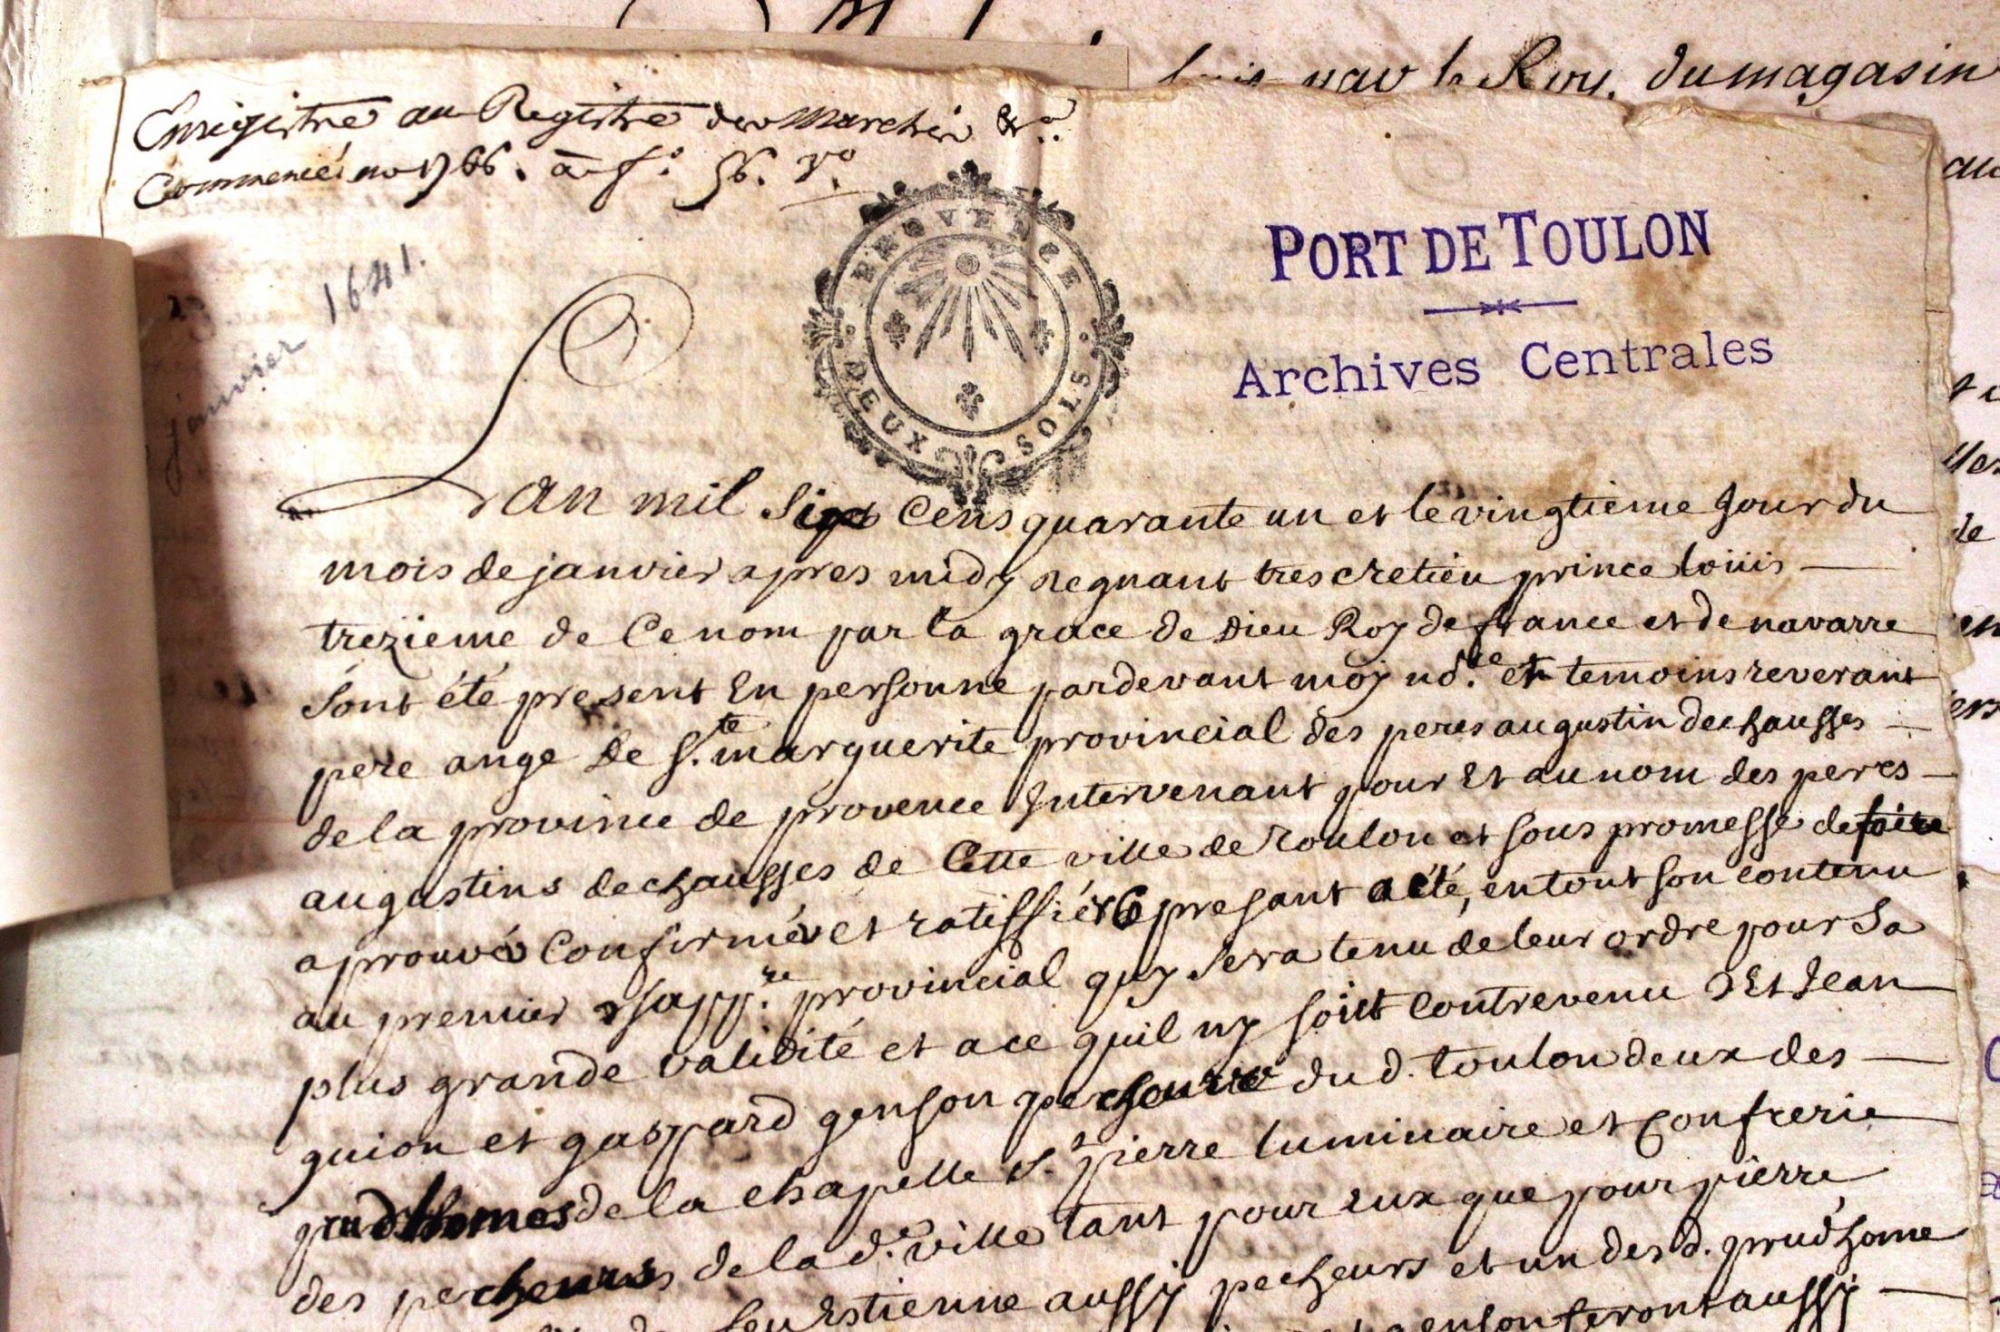 par le Roy. du magasin
Enregistré au Registre des Marchés &.a
Commencé en 1766. à f.o 56. V.o
janvier 1641.
PROVENCE
DEUX SOLS
PORT DE TOULON
Archives Centrales
Lan mil six Cens quarante un et le vingtieme Jour du
mois de janvier apres midy regnant tres cretien prince loüis
trezieme de Ce nom par la grace de Dieu Roy de france et de navarre
sont été present En personne pardevant moy nd.re et temoins reverant
pere ange de S.te marguerite provincial des peres augustin dechausses
de la province de provence Intervenant pour Et au nom des peres
augustins dechausses de Cette ville de toulon et sous promesse de faire
aprouver Confirmer et ratiffier Ce presant acté, en tout son contenu
au premier provincial quy sera tenu de leur ordre pour sa
plus grande validité et a ce quil ny soit Contrevenu Et Jean
guion et gaspard genson pecheurs du d. toulon deux des
prudhomes de la chapelle S.t pierre luminaire et Confrerie
des pecheurs de la d.e ville tant pour Eux que pour pierre
feu Estienne aussy pecheurs et un des d. prudhome
genson seront aussy